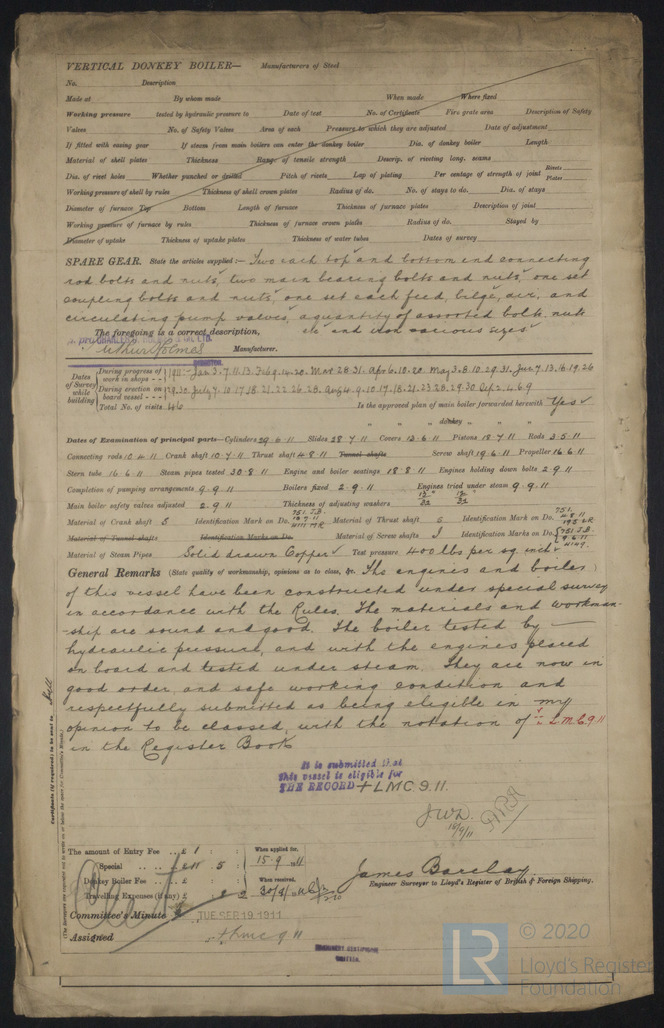 VERTICAL DONKEY BOILER— Manufacturers of Steel
No. Description
Made at By whom made When made Where fixed
Working pressure tested by hydraulic pressure to Date of test No. of Certificate Fire grate area Description of Safety
Valves No. of Safety Valves Area of each Pressure to which they are adjusted Date of adjustment
If fitted with easing gear If steam from main boilers can enter the donkey boiler Dia. of donkey boiler Length
Material of shell plates Thickness Range of tensile strength Descrip. of riveting long. seams
Dia. of rivet holes Whether punched or drilled Pitch of rivets Lap of plating Per centage of strength of joint Rivets Plates
Working pressure of shell by rules Thickness of shell crown plates Radius of do. No. of stays to do. Dia. of stays
Diameter of furnace Top Bottom Length of furnace Thickness of furnace plates Description of joint
Working pressure of furnace by rules Thickness of furnace crown plates Radius of do. Stayed by
Diameter of uptake Thickness of uptake plates Thickness of water tubes Dates of survey
SPARE GEAR. State the articles supplied:— Two each top and bottom end connecting
rod bolts and nuts, two main bearing bolts and nuts, one set
coupling bolts and nuts, one set each feed, bilge, air, and
circulating pump valves, a quantity of assorted bolts, nuts
The foregoing is a correct description, etc and iron various sizes
Arthur Holmes Manufacturer.
Dates of Survey while building
During progress of work in shops - - 1911 - Jan 3. 7. 11. 13. Feb 9. 14. 20. Mar 28. 31. Apr 6. 10. 20. May 3. 8. 10. 29. 31. Jun 7. 13. 16. 19. 26
During erection on board vessel - - - 29. 30. July 4. 10. 17. 18. 21. 22. 26. 28. Aug 4. 9. 10. 17. 18. 21. 23. 28. 29. 30. Sep 2. 4. 6. 9
Total No. of visits 46 Is the approved plan of main boiler forwarded herewith Yes
" " " donkey " " "
Dates of Examination of principal parts—Cylinders 29.6.11 Slides 28.7.11 Covers 13.6.11 Pistons 18.7.11 Rods 3.5.11
Connecting rods 10.4.11 Crank shaft 10.7.11 Thrust shaft 4.8.11 Tunnel shafts Screw shaft 19.6.11 Propeller 16.6.11
Stern tube 16.6.11 Steam pipes tested 30.8.11 Engine and boiler seatings 18.8.11 Engines holding down bolts 2.9.11
Completion of pumping arrangements 9.9.11 Boilers fixed 2.9.11 Engines tried under steam 9.9.11
Main boiler safety valves adjusted 2.9.11 Thickness of adjusting washers
Material of Crank shaft S Identification Mark on Do. 751 J.B. Material of Thrust shaft S Identification Mark on Do. 751
Material of Tunnel shafts Identification Marks on Do. Material of Screw shafts Identification Marks on Do. 751 J.B. 9.6.11
Material of Steam Pipes Solid drawn Copper Test pressure 400 lbs per sq. inch
General Remarks (State quality of workmanship, opinions as to class, &c. The engines and boiler
of this vessel have been constructed under special survey
in accordance with the Rules. The materials and workman-
-ship are sound and good. The boiler tested by
hydraulic pressure, and with the engines placed
on board and tested under steam. They are now in
good order, and safe working condition and
respectfully submitted as being eligible in my
opinion to be classed, with the notation of + L.M.C. 9.11
in the Register Book
It is submitted that
this vessel is eligible for
THE RECORD + LMC 9.11.
J.W.D.
16/9/11
Certificate (if required) to be sent to Hull
The amount of Entry Fee .. £ 1 : : When applied for,
Special .. .. .. £ 11 : 5 : 15.9.1911
Donkey Boiler Fee .. .. £ : : When received,
Travelling Expenses (if any) £
James Barclay
Engineer Surveyor to Lloyd's Register of British & Foreign Shipping.
Committee's Minute TUE. SEP 19. 1911
Assigned + LMC 9.11
LR
© 2020
Lloyd's Register
Foundation